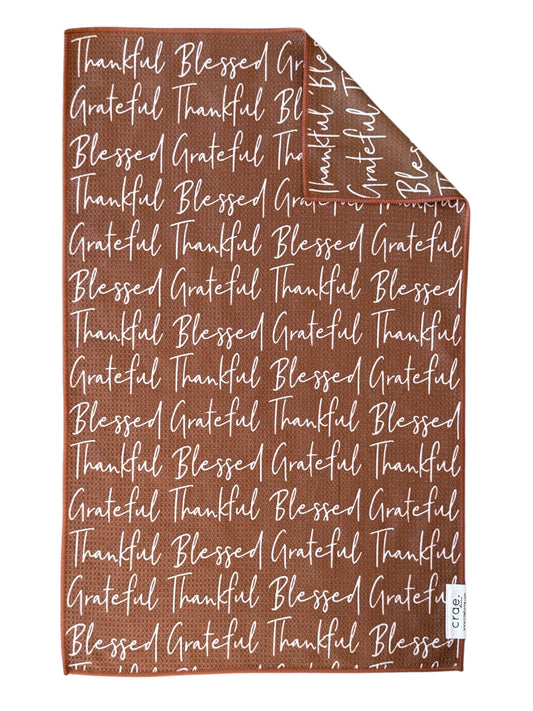 Thankful Blessed Gr
Grateful Thankful Bl
Blessed Grateful Tha
Thankful Blessed Grateful
Grateful Thankful Blessed Grateful
Blessed Grateful Thankful Blessed
Thankful Blessed Grateful Thankful
Grateful Thankful Blessed Grateful
Blessed Grateful Thankful Blessed
Thankful Blessed Grateful Thankful
Grateful Thankful Blessed Grateful
Thankful Blessed Grateful Thankful
Grateful Thankful Blessed Grateful
Blessed Grateful Thankful Blessed
Thankful Bles
Grateful
Bles
crae.